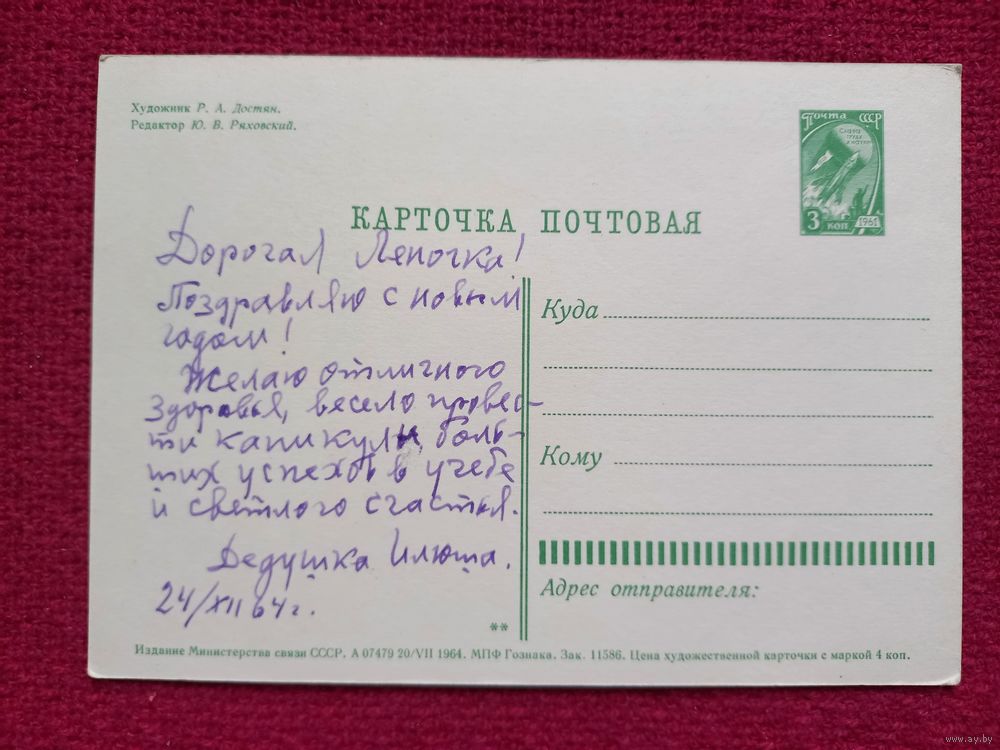 Художник Р. А. Достян.
Редактор Ю. В. Ряховский.
Почта СССР
Слава труду и науке
3 коп
1961
КАРТОЧКА ПОЧТОВАЯ
Дорогая Леночка!
Поздравляю с новым
годом!
Желаю отличного
здоровья, весело провес-
ти каникулы, боль-
ших успехов в учебе
и светлого счастья.
Дедушка Илюша.
24/XII 64 г.
Куда
Кому
Адрес отправителя:
**
Издание Министерства связи СССР. А 07479 20/VII 1964. МПФ Гознака. Зак. 11586. Цена художественной карточки с маркой 4 коп.
www.ay.by